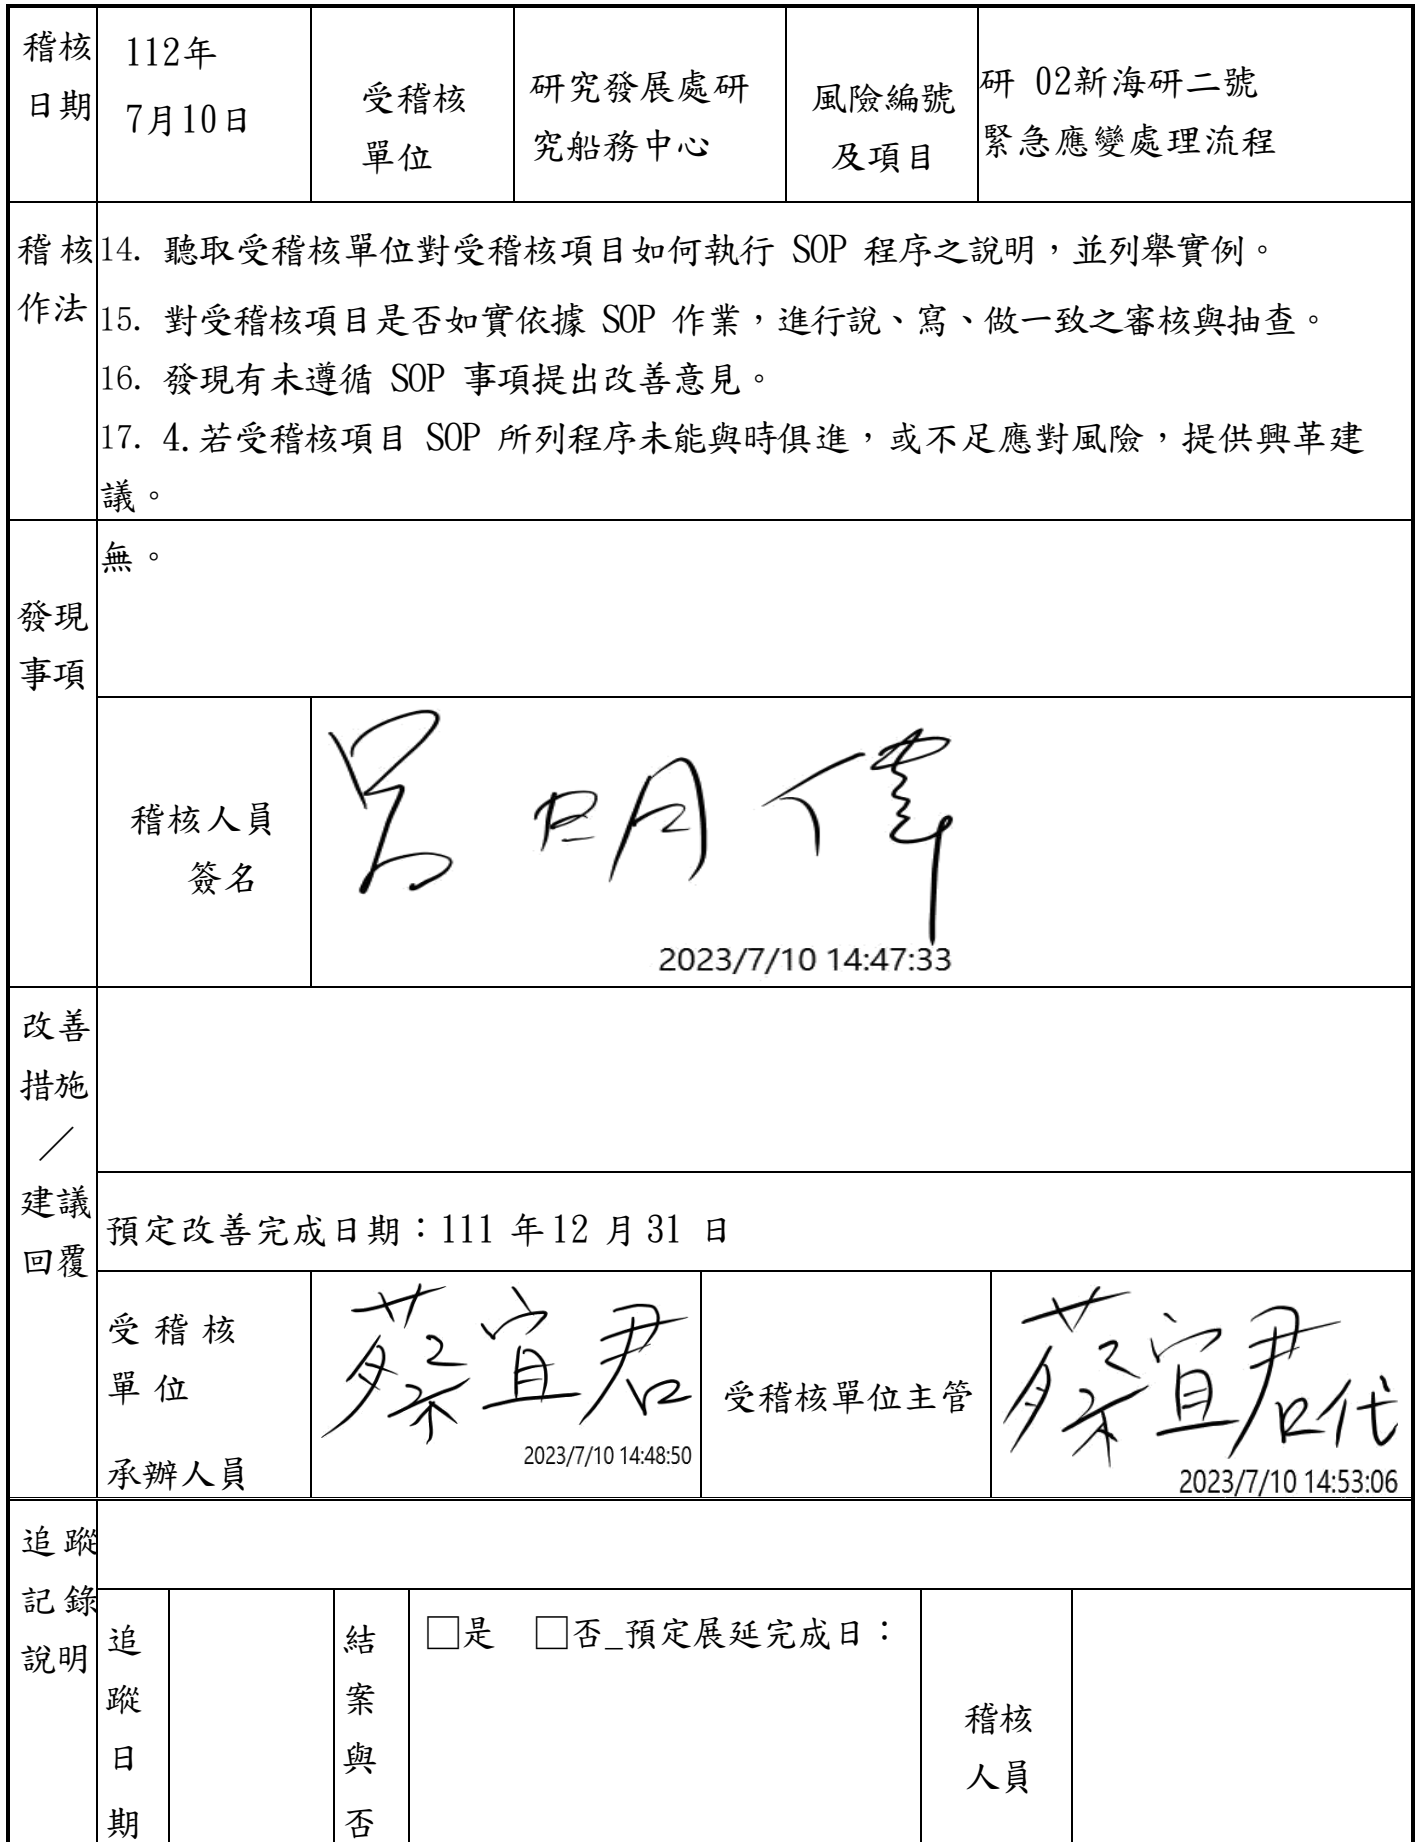 稽核
日期
112年
7月10日
受稽核
單位
研究發展處研
究船務中心
風險編號
及項目
研 02新海研二號
緊急應變處理流程
稽核
作法
14. 聽取受稽核單位對受稽核項目如何執行 SOP 程序之說明，並列舉實例。
15. 對受稽核項目是否如實依據 SOP 作業，進行說、寫、做一致之審核與抽查。
16. 發現有未遵循 SOP 事項提出改善意見。
17. 4.若受稽核項目 SOP 所列程序未能與時俱進，或不足應對風險，提供興革建
議。
發現
事項
無。
稽核人員
簽名
吳明偉
2023/7/10 14:47:33
改善
措施
／
建議
回覆
預定改善完成日期：111 年12 月31 日
受稽核
單位
承辦人員
蔡宜君
2023/7/10 14:48:50
受稽核單位主管
蔡宜君代
2023/7/10 14:53:06
追蹤
記錄
說明
追
蹤
日
期
結
案
與
否
□是 □否_預定展延完成日：
稽核
人員